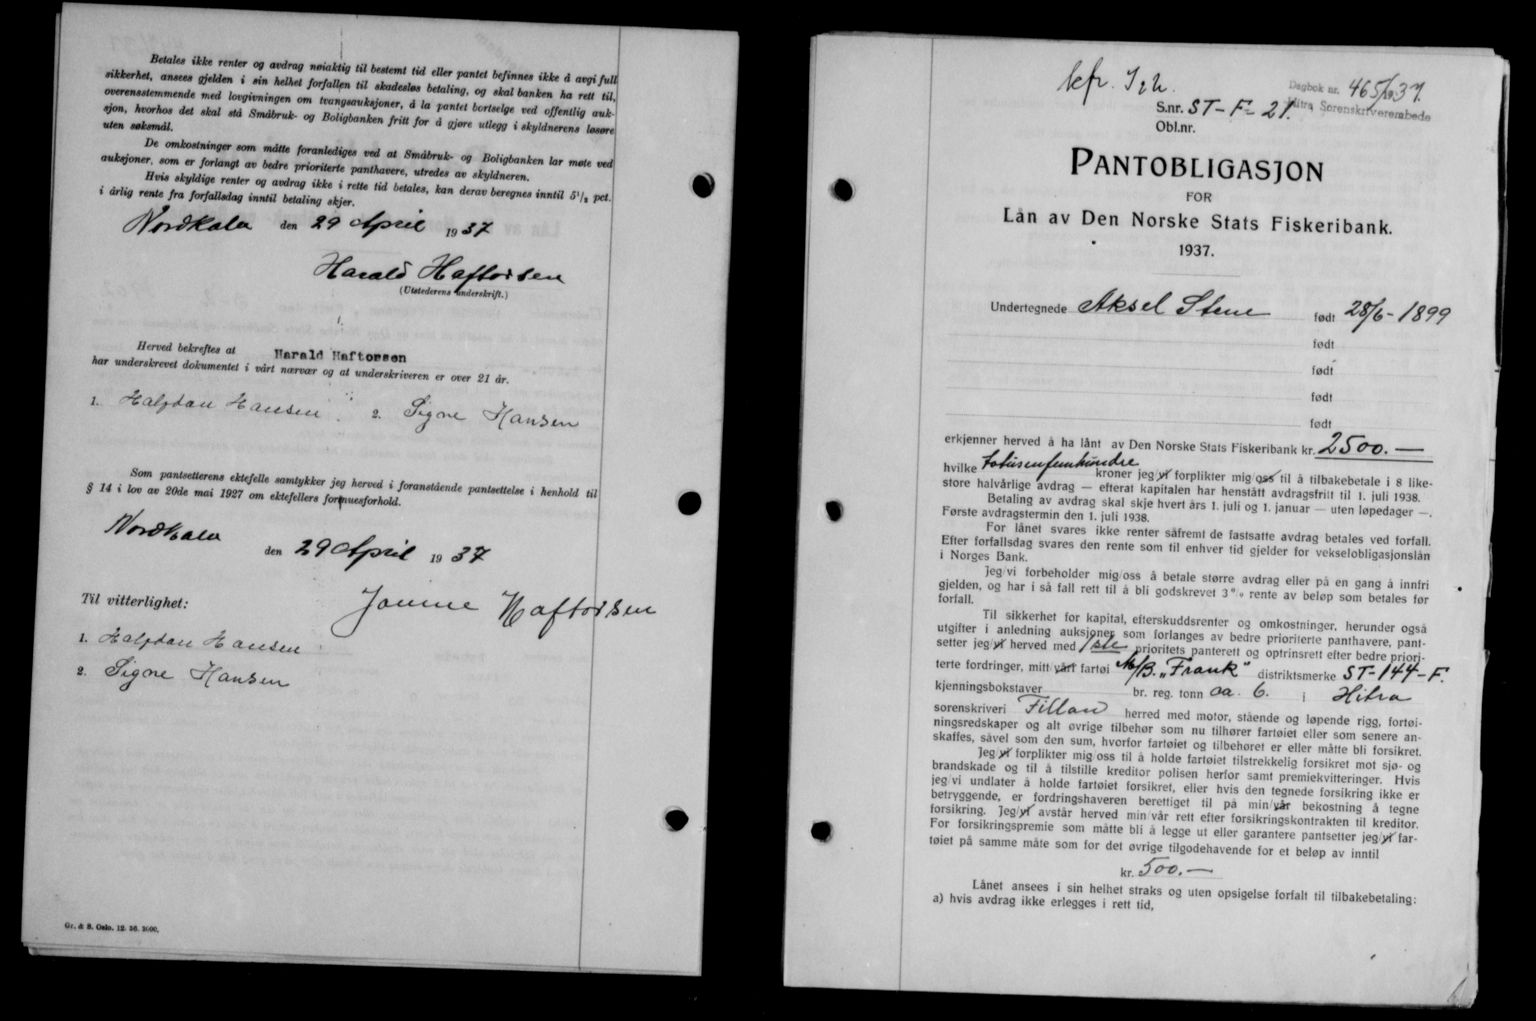 Betales ikke renter og avdrag nøiaktig til bestemt tid eller pantet befinnes ikke å avgi full
sikkerhet, ansees gjelden i sin helhet forfallen til skadesløs betaling, og skal banken ha rett til,
overensstemmende med lovgivningen om tvangsauksjoner, å la pantet bortselge ved offentlig auk-
sjon, hvorhos det skal stå Småbruk- og Boligbanken fritt for å gjøre utlegg i skyldnerens løsøre
uten søksmål.
De omkostninger som måtte foranlediges ved at Småbruk- og Boligbanken lar møte ved
auksjoner, som er forlangt av bedre prioriterte panthavere, utredes av skyldneren.
Hvis skyldige renter og avdrag ikke i rette tid betales, kan derav beregnes inntil 5½ pct.
i årlig rente fra forfallsdag inntil betaling skjer.
Nordkalv den 29 April 1937
Harald Haftorsen
(Utstederens underskrift.)
Herved bekreftes at Harald Haftorsen
har underskrevet dokumentet i vårt nærvær og at underskriveren er over 21 år.
1. Halfdan Hansen 2. Signe Hansen
Som pantsetterens ektefelle samtykker jeg herved i foranstående pantsettelse i henhold til
§ 14 i lov av 20de mai 1927 om ektefellers formuesforhold.
Nordkalv
den 29 April 1937
Til vitterlighet:
Haftorsen
1. Halfdan Hansen
2. Signe Hansen
Gr. & S. Oslo. 12. 36. 3000.
Dagbok nr. 465/1937.
Hitra Sorenskriverembede
S.nr. ST-F-21.
Obl.nr.
PANTOBLIGASJON
FOR
Lån av Den Norske Stats Fiskeribank.
1937.
Undertegnede Aksel Stene født 28/6-1899
født
født
født
født
erkjenner herved å ha lånt av Den Norske Stats Fiskeribank kr. 2500.—
hvilke totusenfemhundre kroner jeg/vi forplikter mig/oss til å tilbakebetale i 8 like-
store halvårlige avdrag — efterat kapitalen har henstått avdragsfritt til 1. juli 1938.
Betaling av avdrag skal skje hvert års 1. juli og 1. januar — uten løpedager —.
Første avdragstermin den 1. juli 1938.
For lånet svares ikke renter såfremt de fastsatte avdrag betales ved forfall.
Efter forfallsdag svares den rente som til enhver tid gjelder for vekselobligasjonslån
i Norges Bank.
Jeg/vi forbeholder mig/oss å betale større avdrag eller på en gang å innfri
gjelden, og har i så fall rett til å bli godskrevet 3 % rente av beløp som betales før
forfall.
Til sikkerhet for kapital, efterskuddsrenter og omkostninger, herunder også
utgifter i anledning auksjoner som forlanges av bedre prioriterte panthavere, pant-
setter jeg/vi herved med 1ste prioritets panterett og optrinsrett efter bedre priori-
terte fordringer, mitt/vårt fartøi M/B. „Frank" distriktsmerke ST-144-F.
kjenningsbokstaver br. reg. tonn ca. 6. i Hitra
sorenskriveri Fillan herred med motor, stående og løpende rigg, fortøi-
ningsredskaper og alt øvrige tilbehør som nu tilhører fartøiet eller som senere an-
skaffes, såvel som den sum, hvorfor fartøiet og tilbehøret er eller måtte bli forsikret.
Jeg/vi forplikter mig/oss til å holde fartøiet tilstrekkelig forsikret mot sjø- og
brandskade og til å tilstille kreditor polisen herfor samt premiekvitteringer. Hvis
jeg/vi undlater å holde fartøiet forsikret, eller hvis den tegnede forsikring ikke er
betryggende, er fordringshaveren berettiget til på min/vår bekostning å tegne
forsikring. Jeg/vi avstår herved min/vår rett efter forsikringskontrakten til kreditor.
For forsikringspremie som måtte bli å legge ut eller garantere pantsetter jeg/vi far-
tøiet på samme måte som for det øvrige tilgodehavende for et beløp av inntil
kr. 500.—
Lånet ansees i sin helhet straks og uten opsigelse forfalt til tilbakebetaling:
a) hvis avdrag ikke erlegges i rett tid,